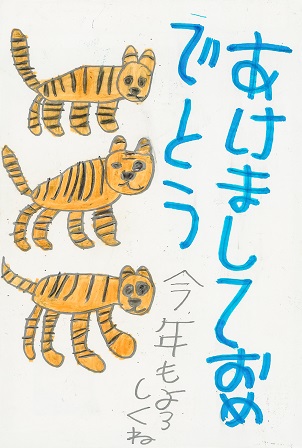 あけましておめ
でとう
今年もよろ
しくね